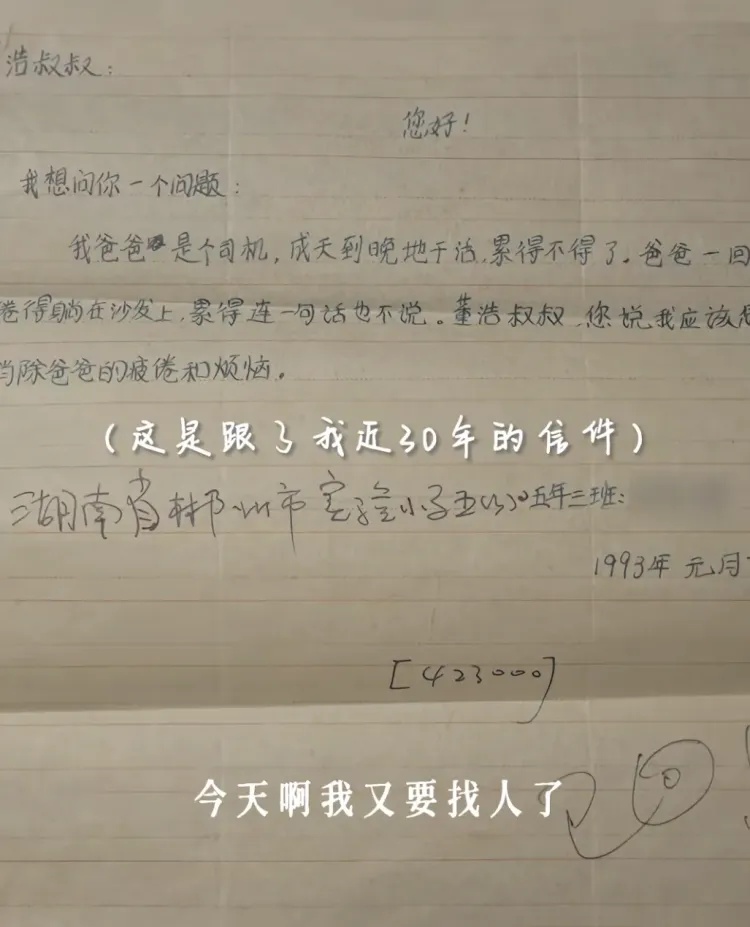 浩叔叔:
您好!
我想问你一个问题:
我爸爸是个司机,成天到晚地干活,累得不得了。爸爸一回
倦得躺在沙发上,累得连一句话也不说。董浩叔叔,您说我应该怎
消除爸爸的疲倦和烦恼。
(这是跟了我近30年的信件)
湖南省郴州市实验小学五(3)五年三班:
1993年 元月
[423000]
今天啊我又要找人了